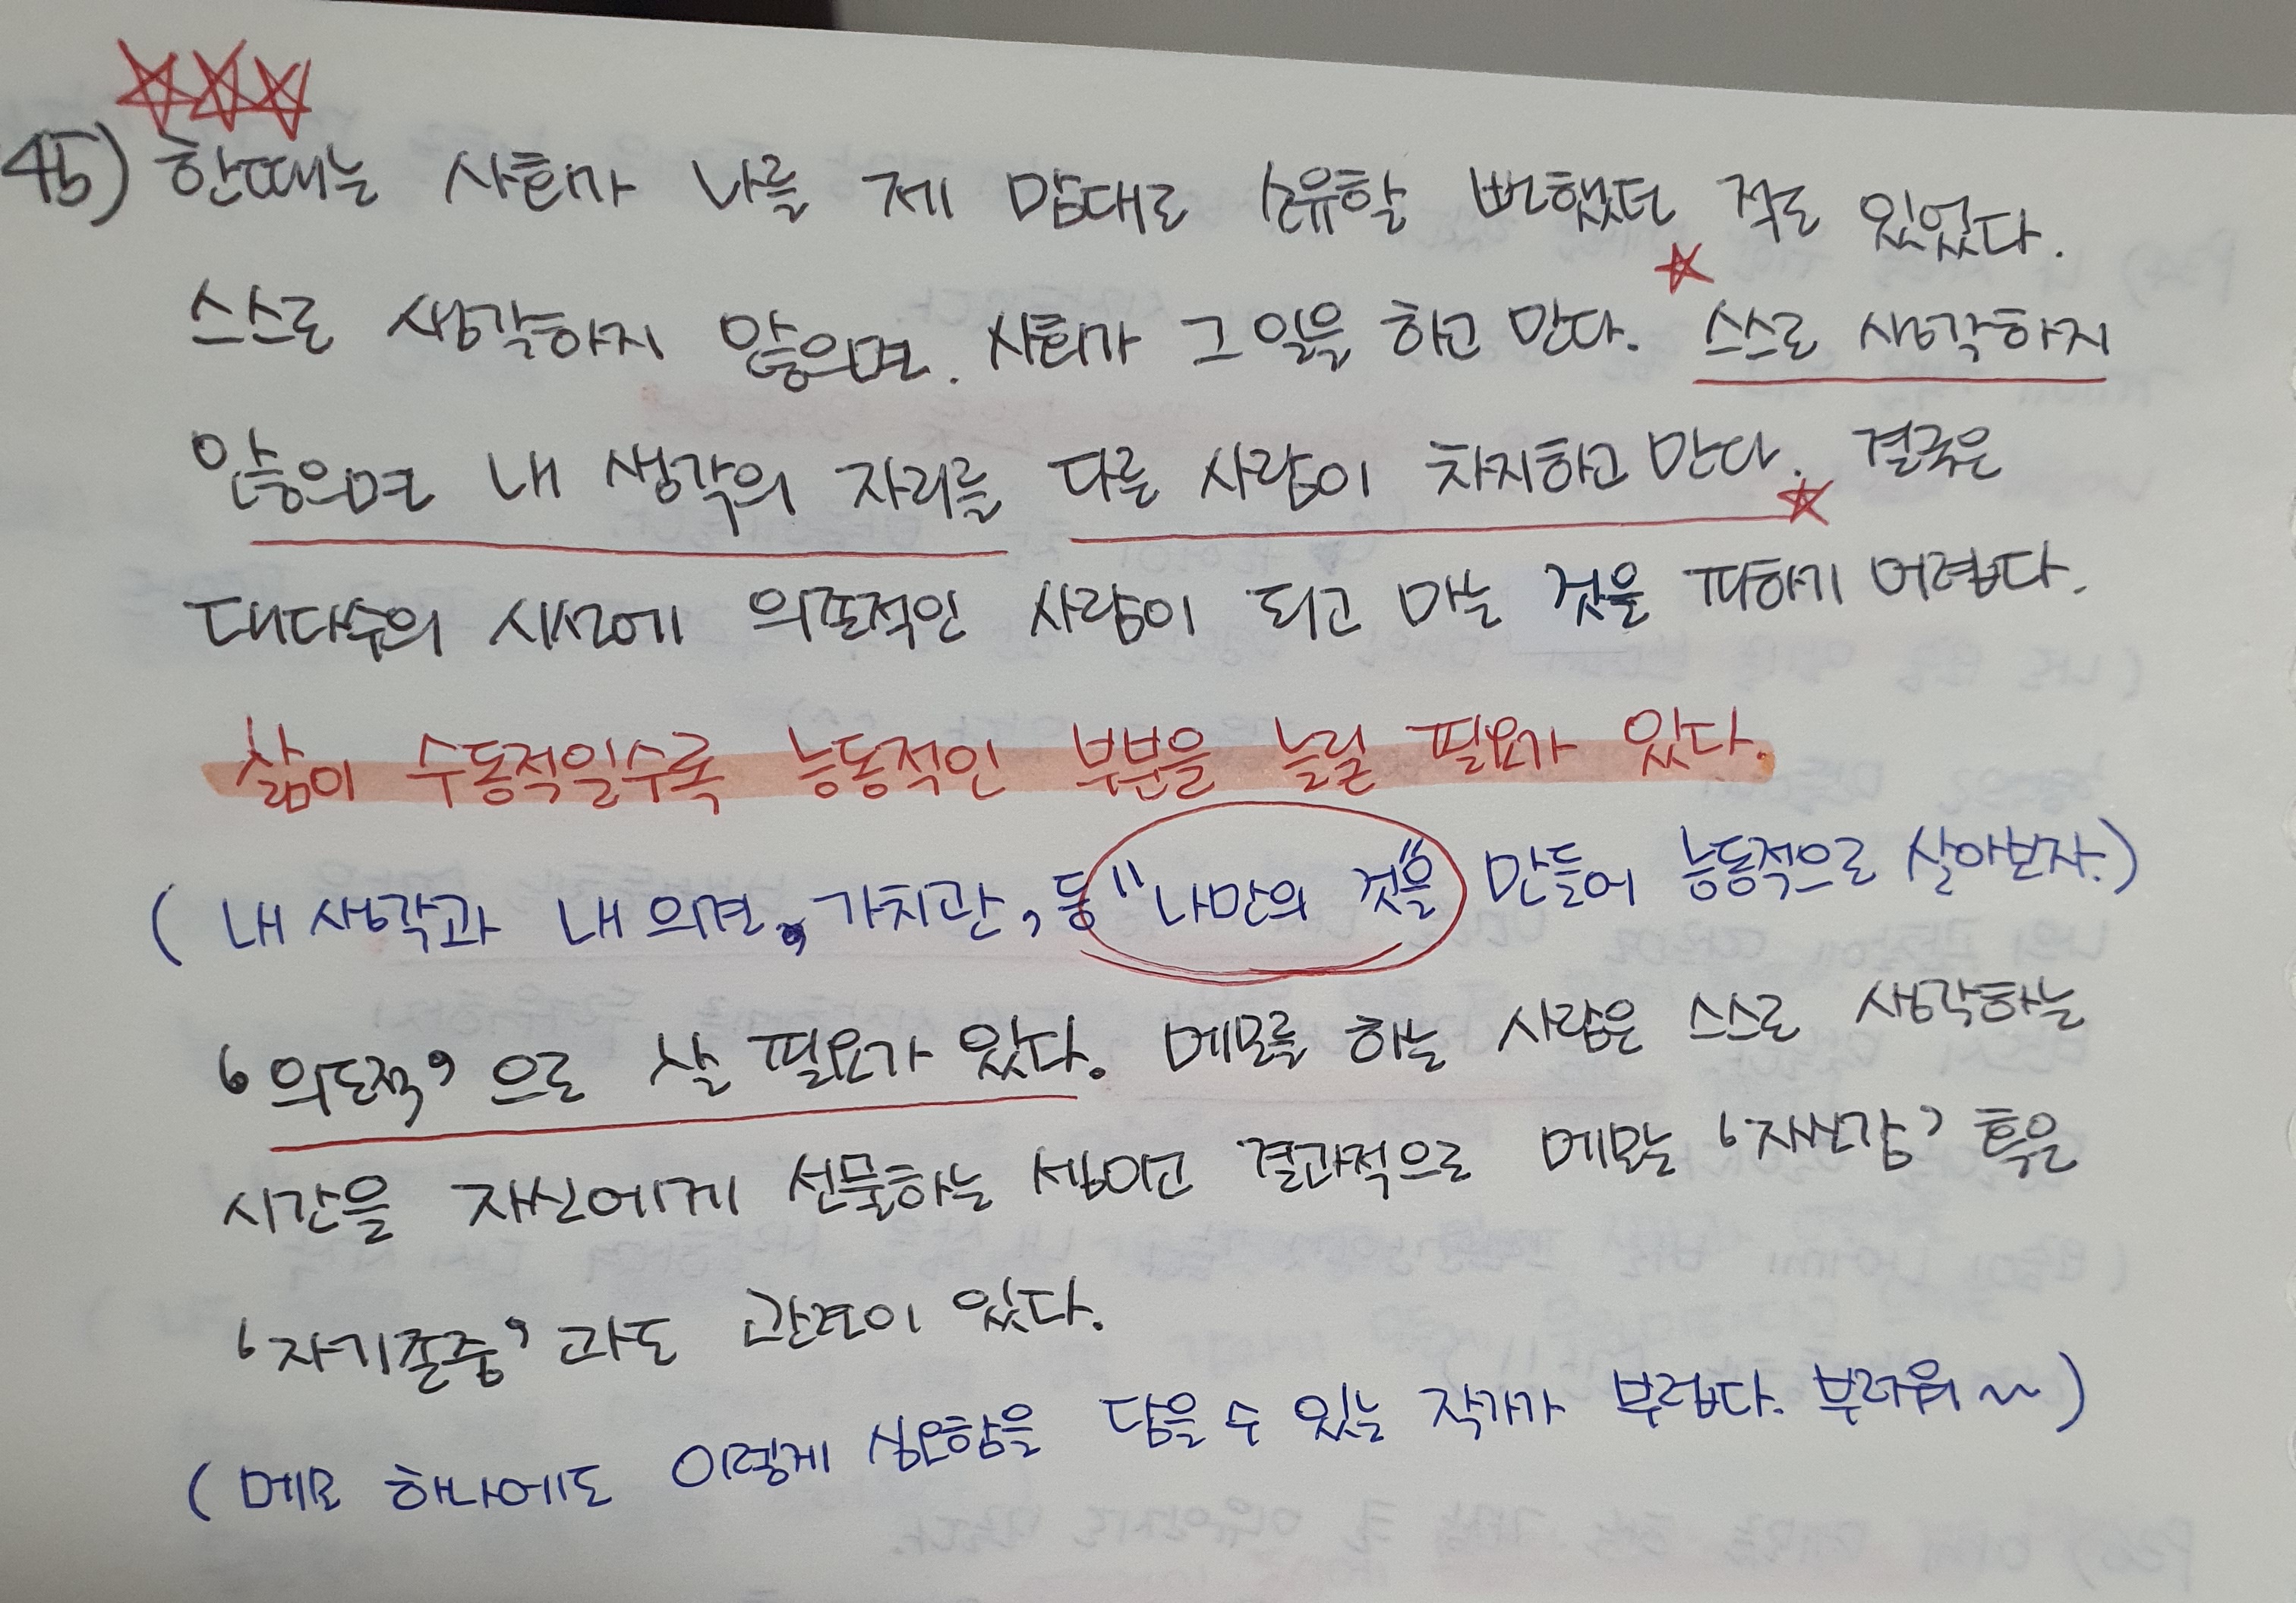 45) 한때는 사회가 나를 제 맘대로 소유할 뻔했던 적도 있었다.
스스로 생각하지 않으면. 사회가 그 일을 하고 만다. 스스로 생각하지
않으면 내 생각의 자리를 다른 사람이 차지하고 만다. 결국은
대다수의 시선에 의존적인 사람이 되고 마는 것을 피하기 어렵다.
삶이 수동적일수록 능동적인 부분을 늘릴 필요가 있다.
( 내 생각과 내 의견, 가치관, 등 "나만의 것"을 만들어 능동적으로 살아보자.)
'의도적'으로 살 필요가 있다. 메모를 하는 사람은 스스로 생각하는
시간을 자신에게 선물하는 셈이고 결과적으로 메모는 '자신감' 혹은
'자기존중'과도 관련이 있다.
( 메모 하나에도 이렇게 심오함을 담을 수 있는 작가가 부럽다. 부러워~~)